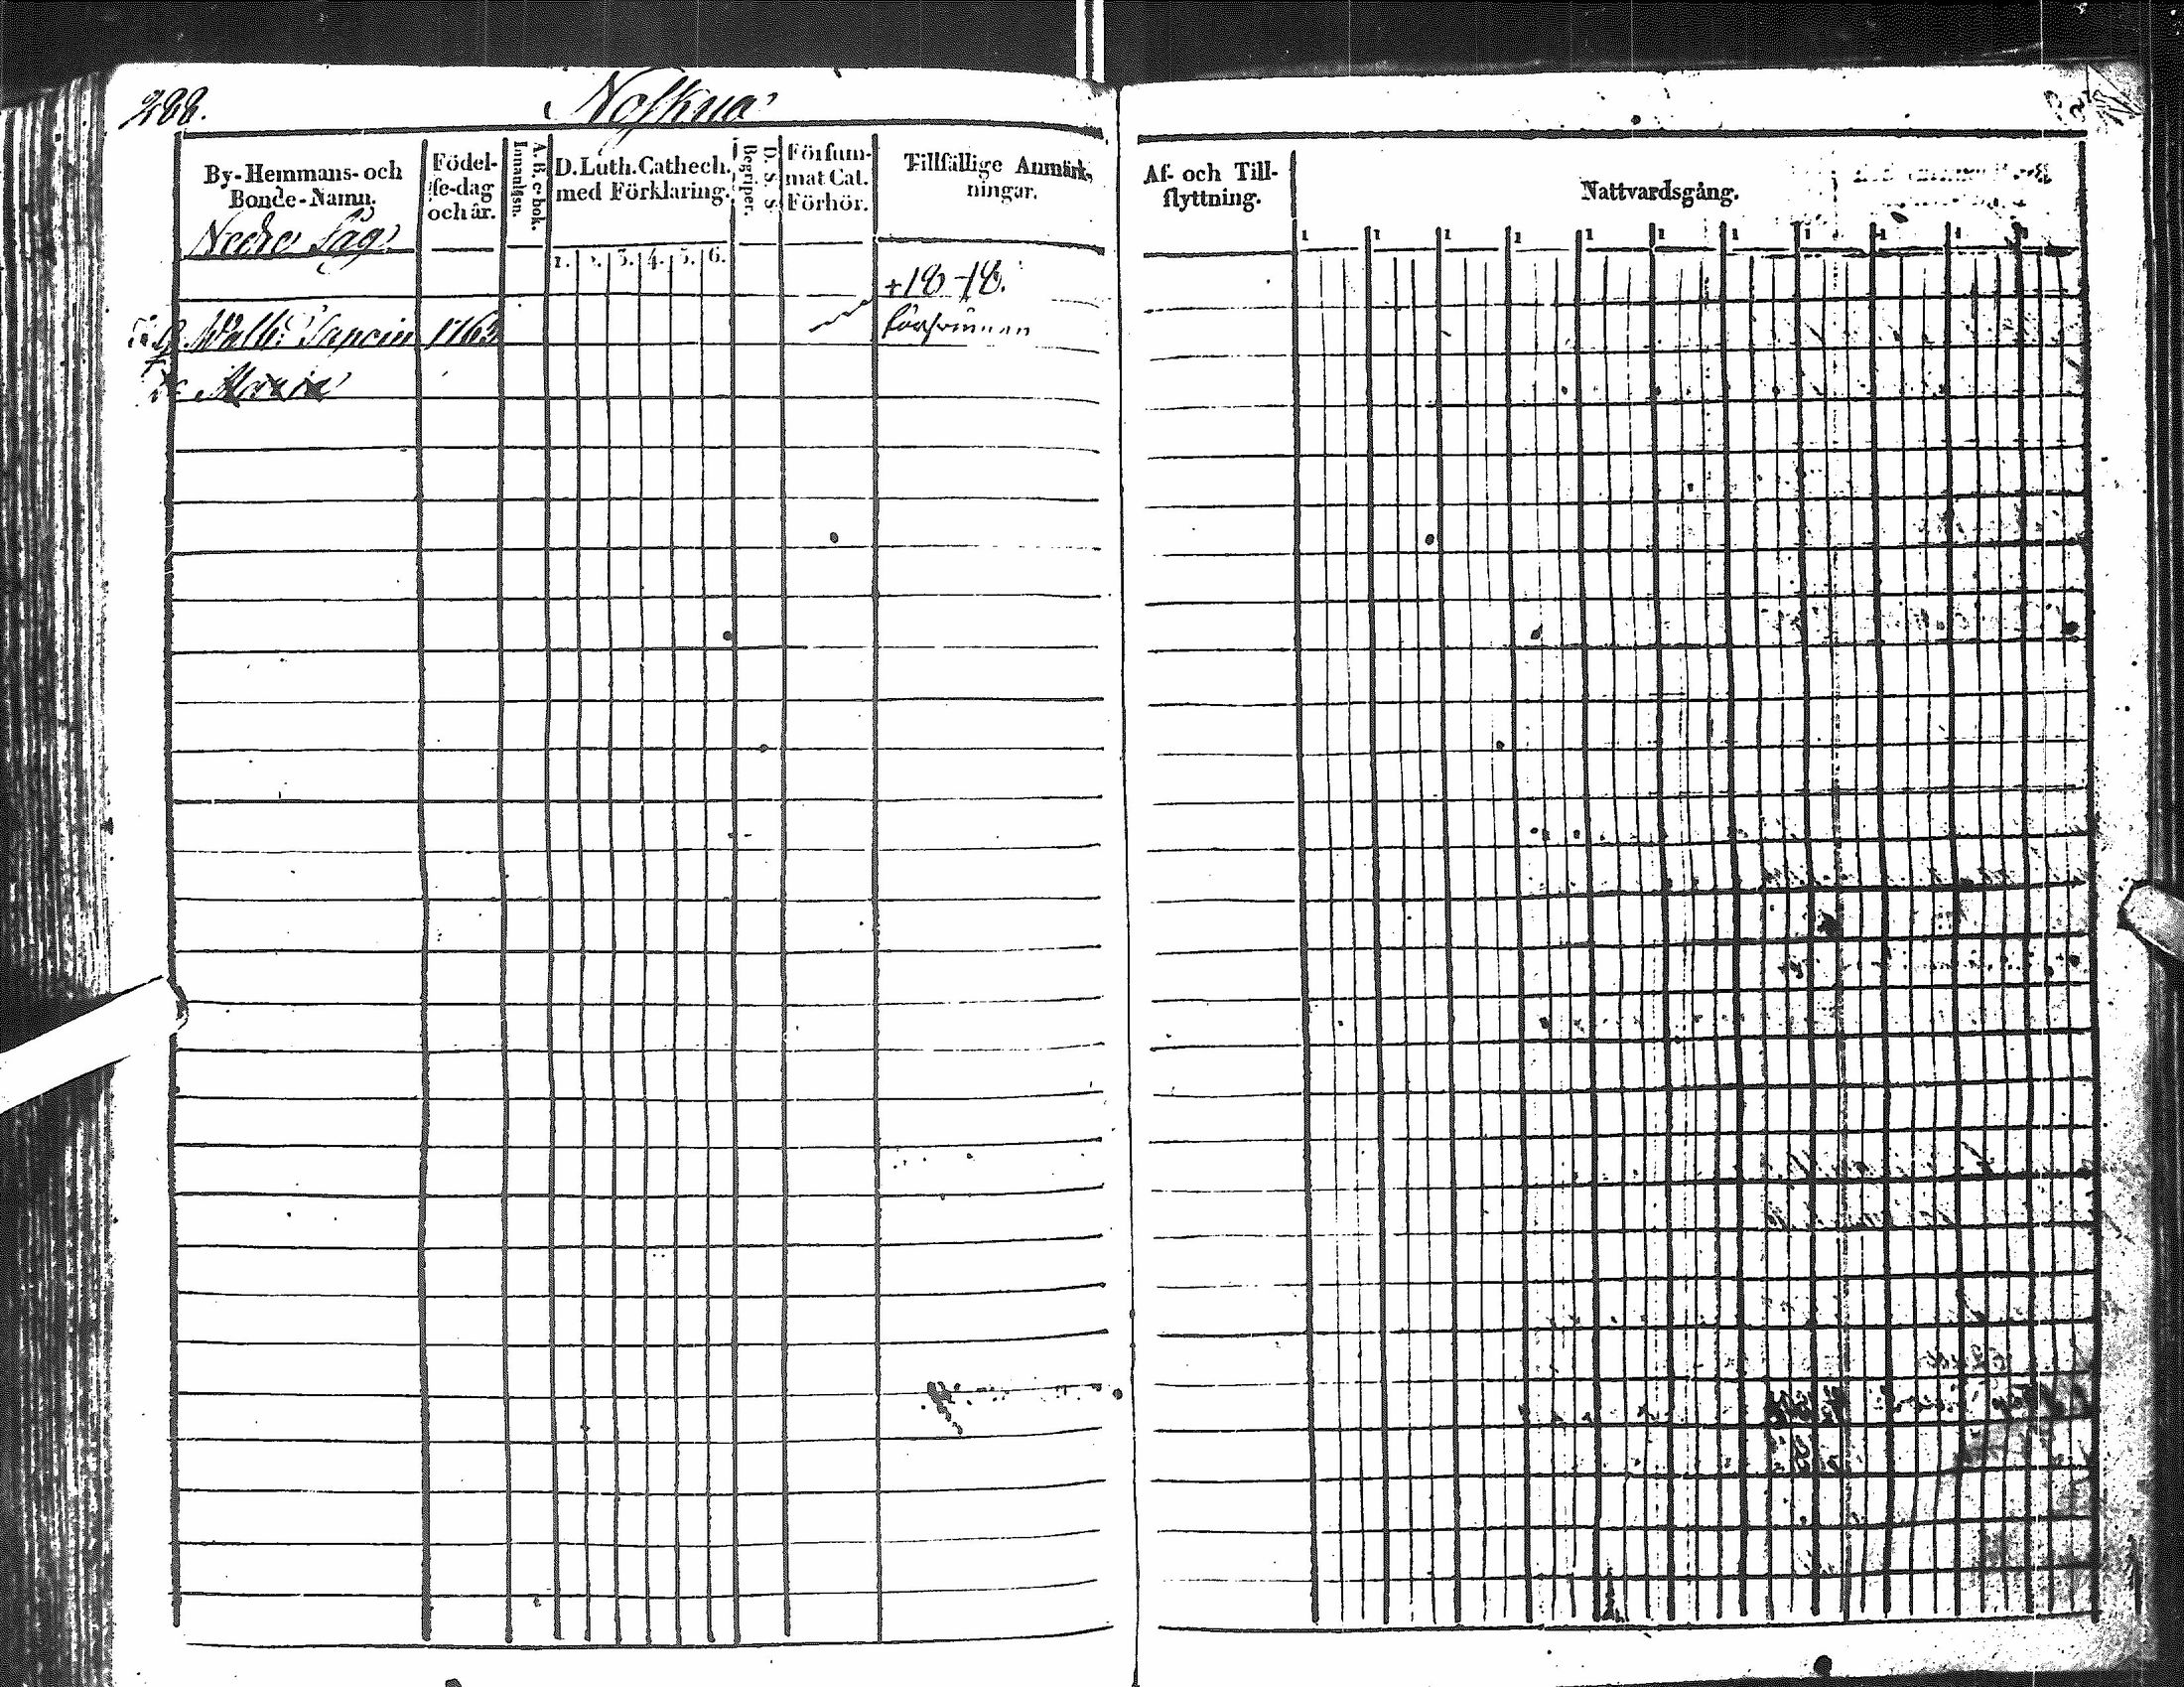 288.
Noskua
By-Hemmans- och
Bonde-Namn.
Nedre Såg
Födel-
se-dag
och år.
A. B. c-bok.
Innanläsn.
D. Luth. Cathech.
med Förklaring.
1. 2. 3. 4. 5. 6.
D. S. S.
Begriper.
Försum-
mat Cat.
Förhör.
Tillfällige Anmärk-
ningar.
+18-18.
försvunnen
1763
Maria
Af- och Till-
flyttning.
Nattvardsgång.
1 1 1 1 1 1 1 1 1 1 1